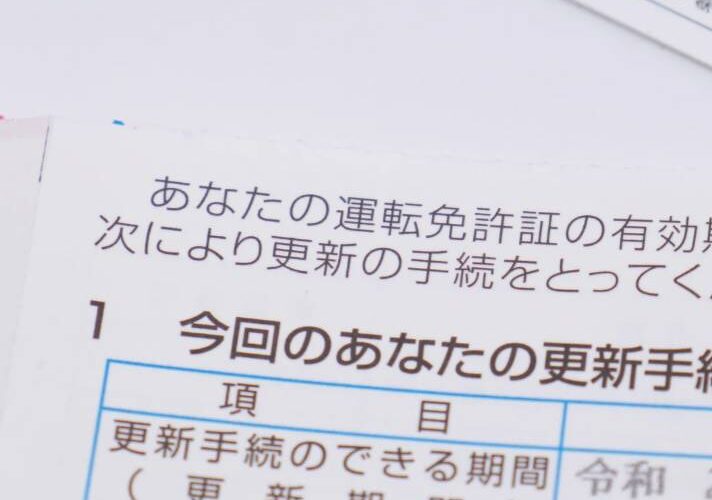 あなたの運転免許証の有効期
次により更新の手続をとってく
1 今回のあなたの更新手続
項 目
更新手続のできる期間 令和 2
( 更 新 期 間